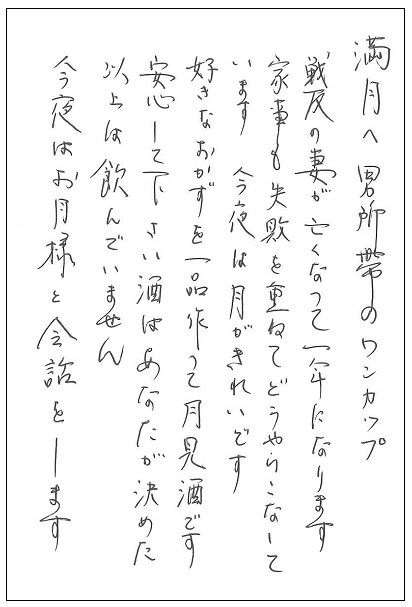 満月へ 男所帯のワンカップ
戦友の妻が亡くなって一年になります
家事も失敗を重ねてどうやらこなして
います 今夜は月がきれいです
好きなおかずを一品作って月見酒です
安心して下さい酒はあなたが決めた
以上は飲んでいません
今夜はお月様と会話をします